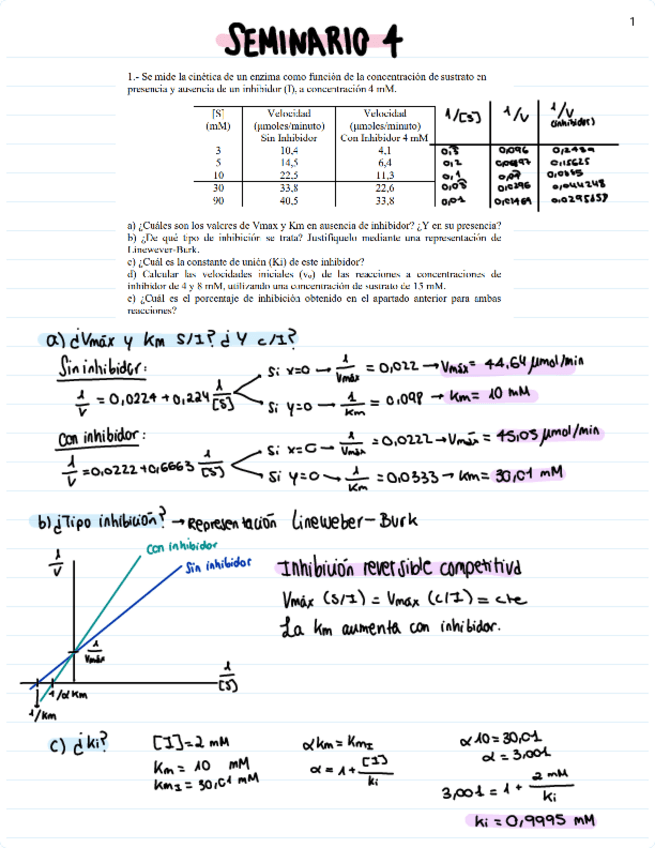 1
SEMINARIO 4
1.- Se mide la cinética de un enzima como función de la concentración de sustrato en
presencia y ausencia de un inhibidor (I), a concentración 4 mM.
[S] (mM) | Velocidad (µmoles/minuto) Sin Inhibidor | Velocidad (µmoles/minuto) Con Inhibidor 4 mM | 1/[S] | 1/V | 1/V (inhibidor)
3 | 10,4 | 4,1 | 0,3 | 0,096 | 0,2439
5 | 14,5 | 6,4 | 0,2 | 0,0697 | 0,15625
10 | 22,5 | 11,3 | 0,1 | 0,04 | 0,0885
30 | 33,8 | 22,6 | 0,03 | 0,0296 | 0,044248
90 | 40,5 | 33,8 | 0,01 | 0,02469 | 0,0295858
a) ¿Cuáles son los valores de Vmax y Km en ausencia de inhibidor? ¿Y en su presencia?
b) ¿De qué tipo de inhibición se trata? Justifíquelo mediante una representación de
Linewever-Burk.
c) ¿Cuál es la constante de unión (Ki) de este inhibidor?
d) Calcular las velocidades iniciales (v₀) de las reacciones a concentraciones de
inhibidor de 4 y 8 mM, utilizando una concentración de sustrato de 15 mM.
e) ¿Cuál es el porcentaje de inhibición obtenido en el apartado anterior para ambas
reacciones?
a) ¿Vmáx y Km S/I? ¿Y c/I?
Sin inhibidor:
1/V = 0,0224 + 0,224 1/[S]
Si x=0 → 1/Vmáx = 0,022 → Vmáx = 44,64 µmol/min
Si y=0 → 1/Km = 0,098 → Km = 10 mM
Con inhibidor:
1/V = 0,0222 + 0,6663 1/[S]
Si x=0 → 1/Vmáx = 0,0222 → Vmáx = 45,05 µmol/min
Si y=0 → 1/Km = 0,0333 → Km = 30,01 mM
b) ¿Tipo inhibición? → Representación Lineweber-Burk
1/V
Con inhibidor
Sin inhibidor
1/Vmáx
1/[S]
1/αKm
1/Km
Inhibición reversible competitiva
Vmáx (S/I) = Vmáx (c/I) = cte
La Km aumenta con inhibidor.
c) ¿ki?
[I]=2 mM
Km = 10 mM
KmI = 30,01 mM
αKm = KmI
α = 1 + [I]/ki
α 10 = 30,01
α = 3,001
3,001 = 1 + 2 mM/ki
ki = 0,9995 mM